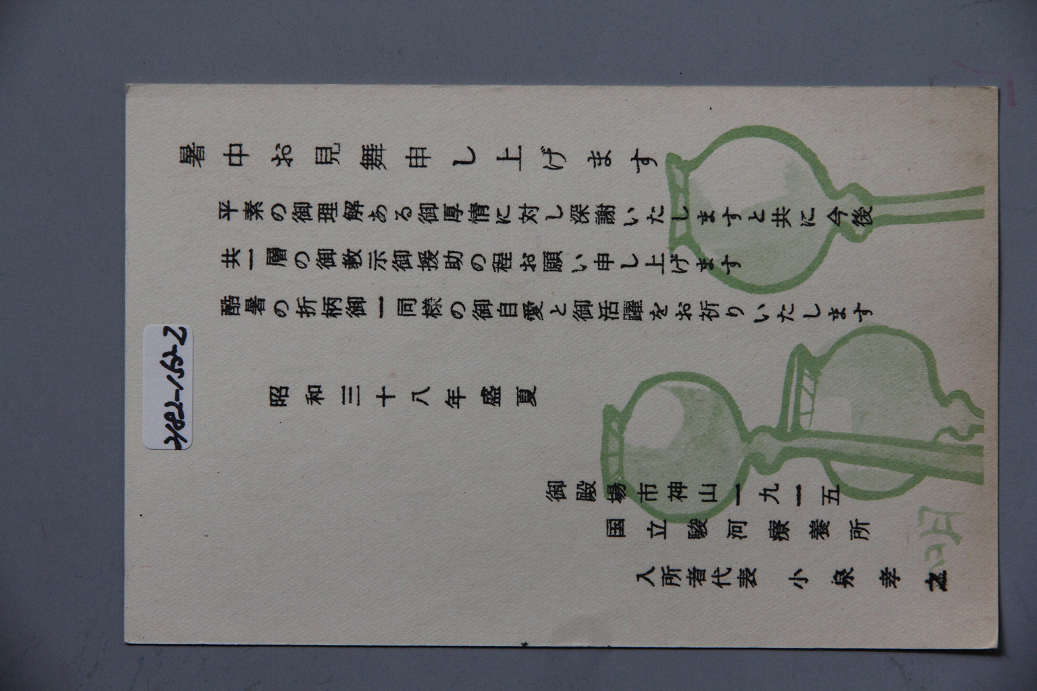 暑中お見舞申し上げます
平素の御理解ある御厚情に対し深謝いたしますと共に今後
共一層の御教示御援助の程お願い申し上げます
酷暑の折柄御一同様の御自愛と御活躍をお祈りいたします
昭和三十八年盛夏
御殿場市神山一九一五
国立駿河療養所
入所者代表 小泉孝之
2482-152-2